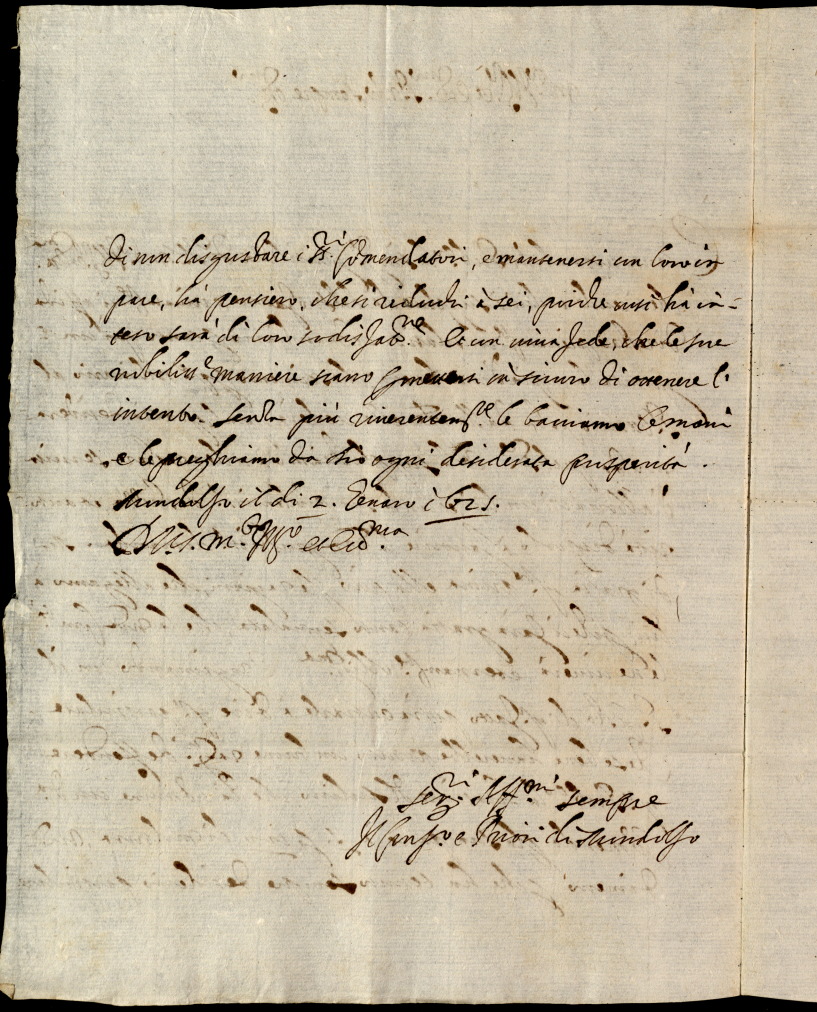 di non disgustare i SS.ri Comendatori, e mantenersi con loro in
pace, hà pensiero, che si riduchi à sei, poiche così hà in-
teso sarà di loro sodisfat.ne E con viva fede, che le sue
nobiliss.e maniere siano
intento. senza più riverentem.te le baciamo le mani
e le preghiamo da Dio ogni desiderata prosperità.
Mondolfo il dì 2. Genaro 1625.
D.V.S. m.to Ill.re
Ser.ri Aff.mi sempre
Il Conf.re e Priori di Mondolfo